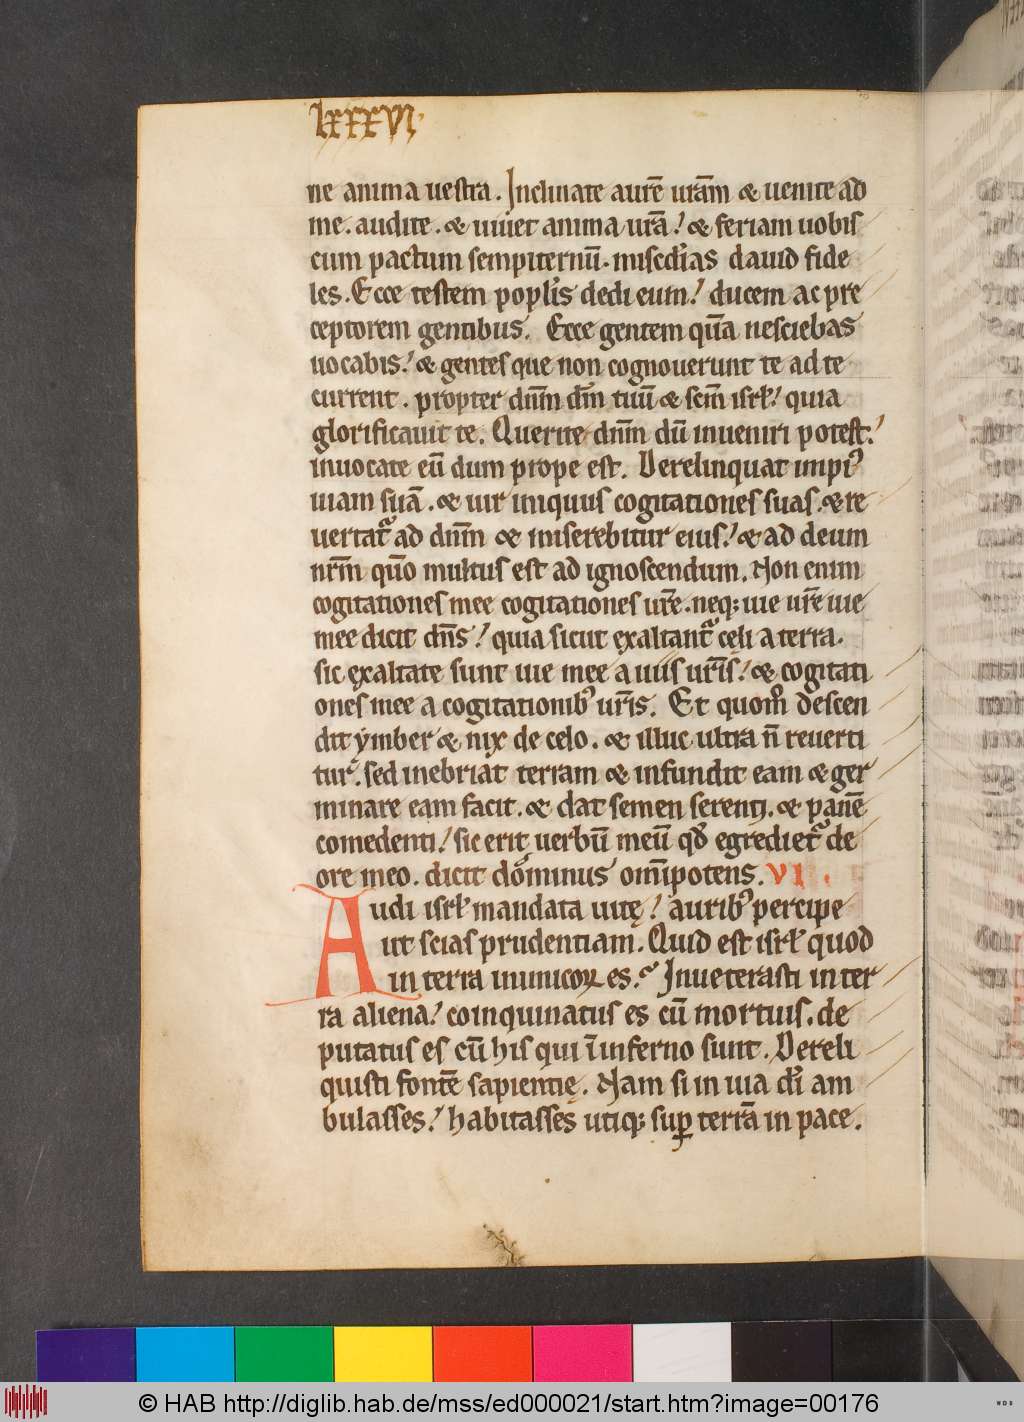 lxxxvi.
ne anima uestra. Inclinate aurē urām & uenite ad
me. audite. & uiuet anima urā! & feriam uobis
cum pactum sempiternū. misedīas dauid fide
les. Ecce testem poplis dedi eum! ducem ac pre
ceptorem gentibus. Ecce gentem quā nesciebas
uocabis! & gentes que non cognouerunt te ad te
current. propter dn̄m dm̄ tuū & scm̄ isrł! quia
glorificauit te. Querite dn̄m dū inueniri potest!
inuocate eū dum prope est. Derelinquat impi9
uiam suā. & uir iniquus cogitationes suas. & re
uertat᷑ ad dn̄m & miserebitur eius! & ad deum
nrm̄ quō multus est ad ignoscendum. Non enim
cogitationes mee cogitationes ur̄e. neq; uie ur̄e uie
mee dicit dn̄s! quia sicut exaltant᷑ cęli a terra.
sic exaltate sunt uie mee a uiis ur̄is! & cogitati
ones mee a cogitationib9 ur̄is. Et quom̊ descen
dit ymber & nix de celo. & illuc ultra n̄ reuerti
tur. sed inebriat terram & infundit eam & ger
minare eam facit. & dat semen serenti. & panē
comedenti! sic erit uerbū meū qd̄ egrediet᷑ de
ore meo. dicit dominus om̄ipotens. VI.
Audi isrł mandata uitę! aurib9 percipe
ut scias prudentiam. Quid est isrł quod
in terra inimicoꝝ es? Inueterasti in ter
ra aliena! coinquinatus es cū mortuis. de
putatus es cū his qui ī inferno sunt. Dereli
quisti fontē sapientię. Nam si in uia dī am
bulasses! habitasses utiq; suꝑ terrā in pace.
© HAB http://diglib.hab.de/mss/ed000021/start.htm?image=00176